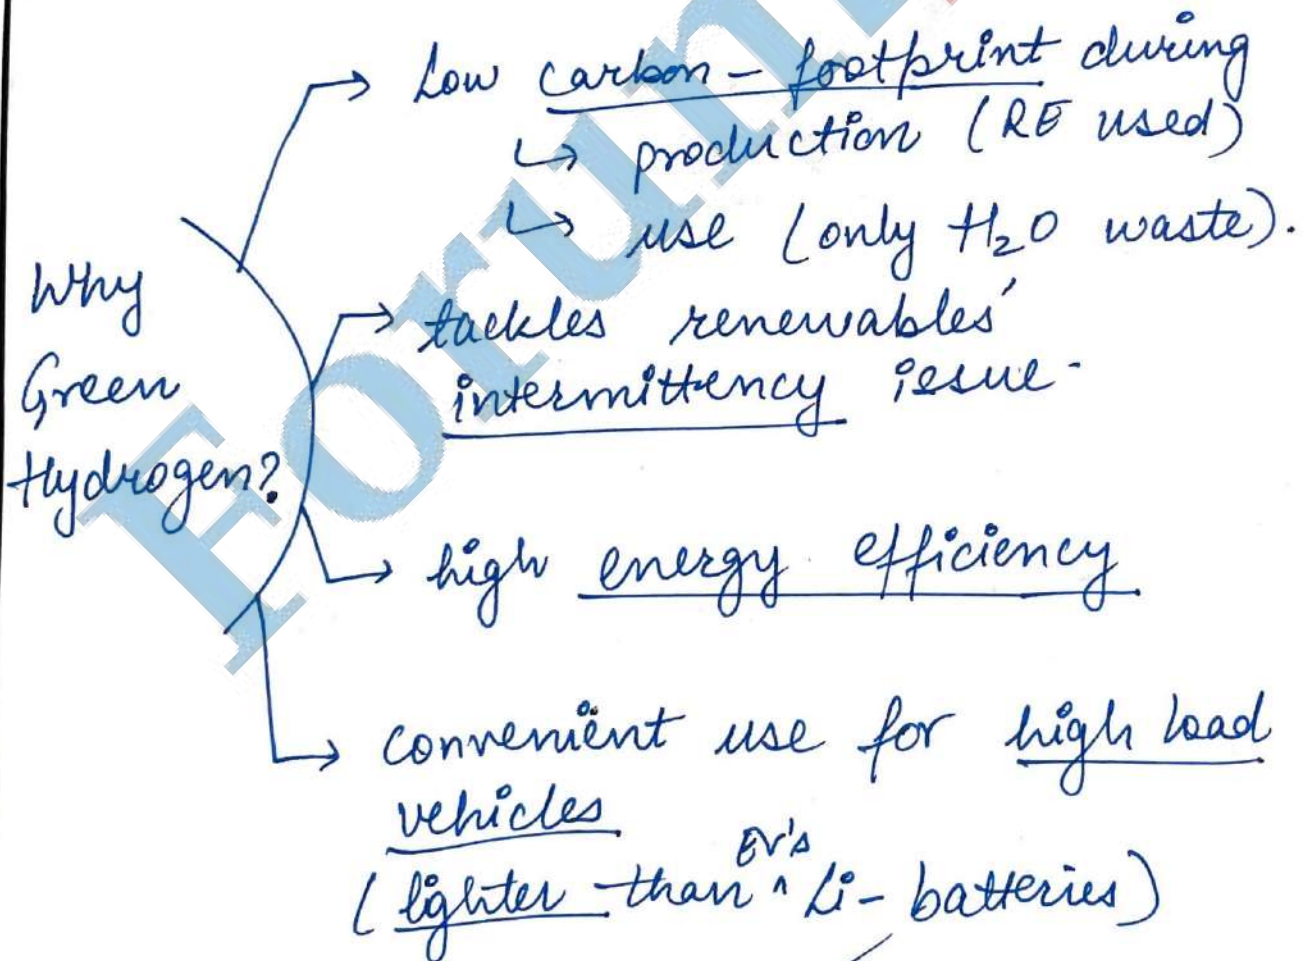 Low carbon - footprint during
↳ production (RE used)
↳ use (only H₂O waste).
Why
Green
Hydrogen?
tackles renewables'
intermittency issue -
high energy efficiency
convenient use for high load
vehicles
(lighter than ^ EV's Li- batteries)
Forum